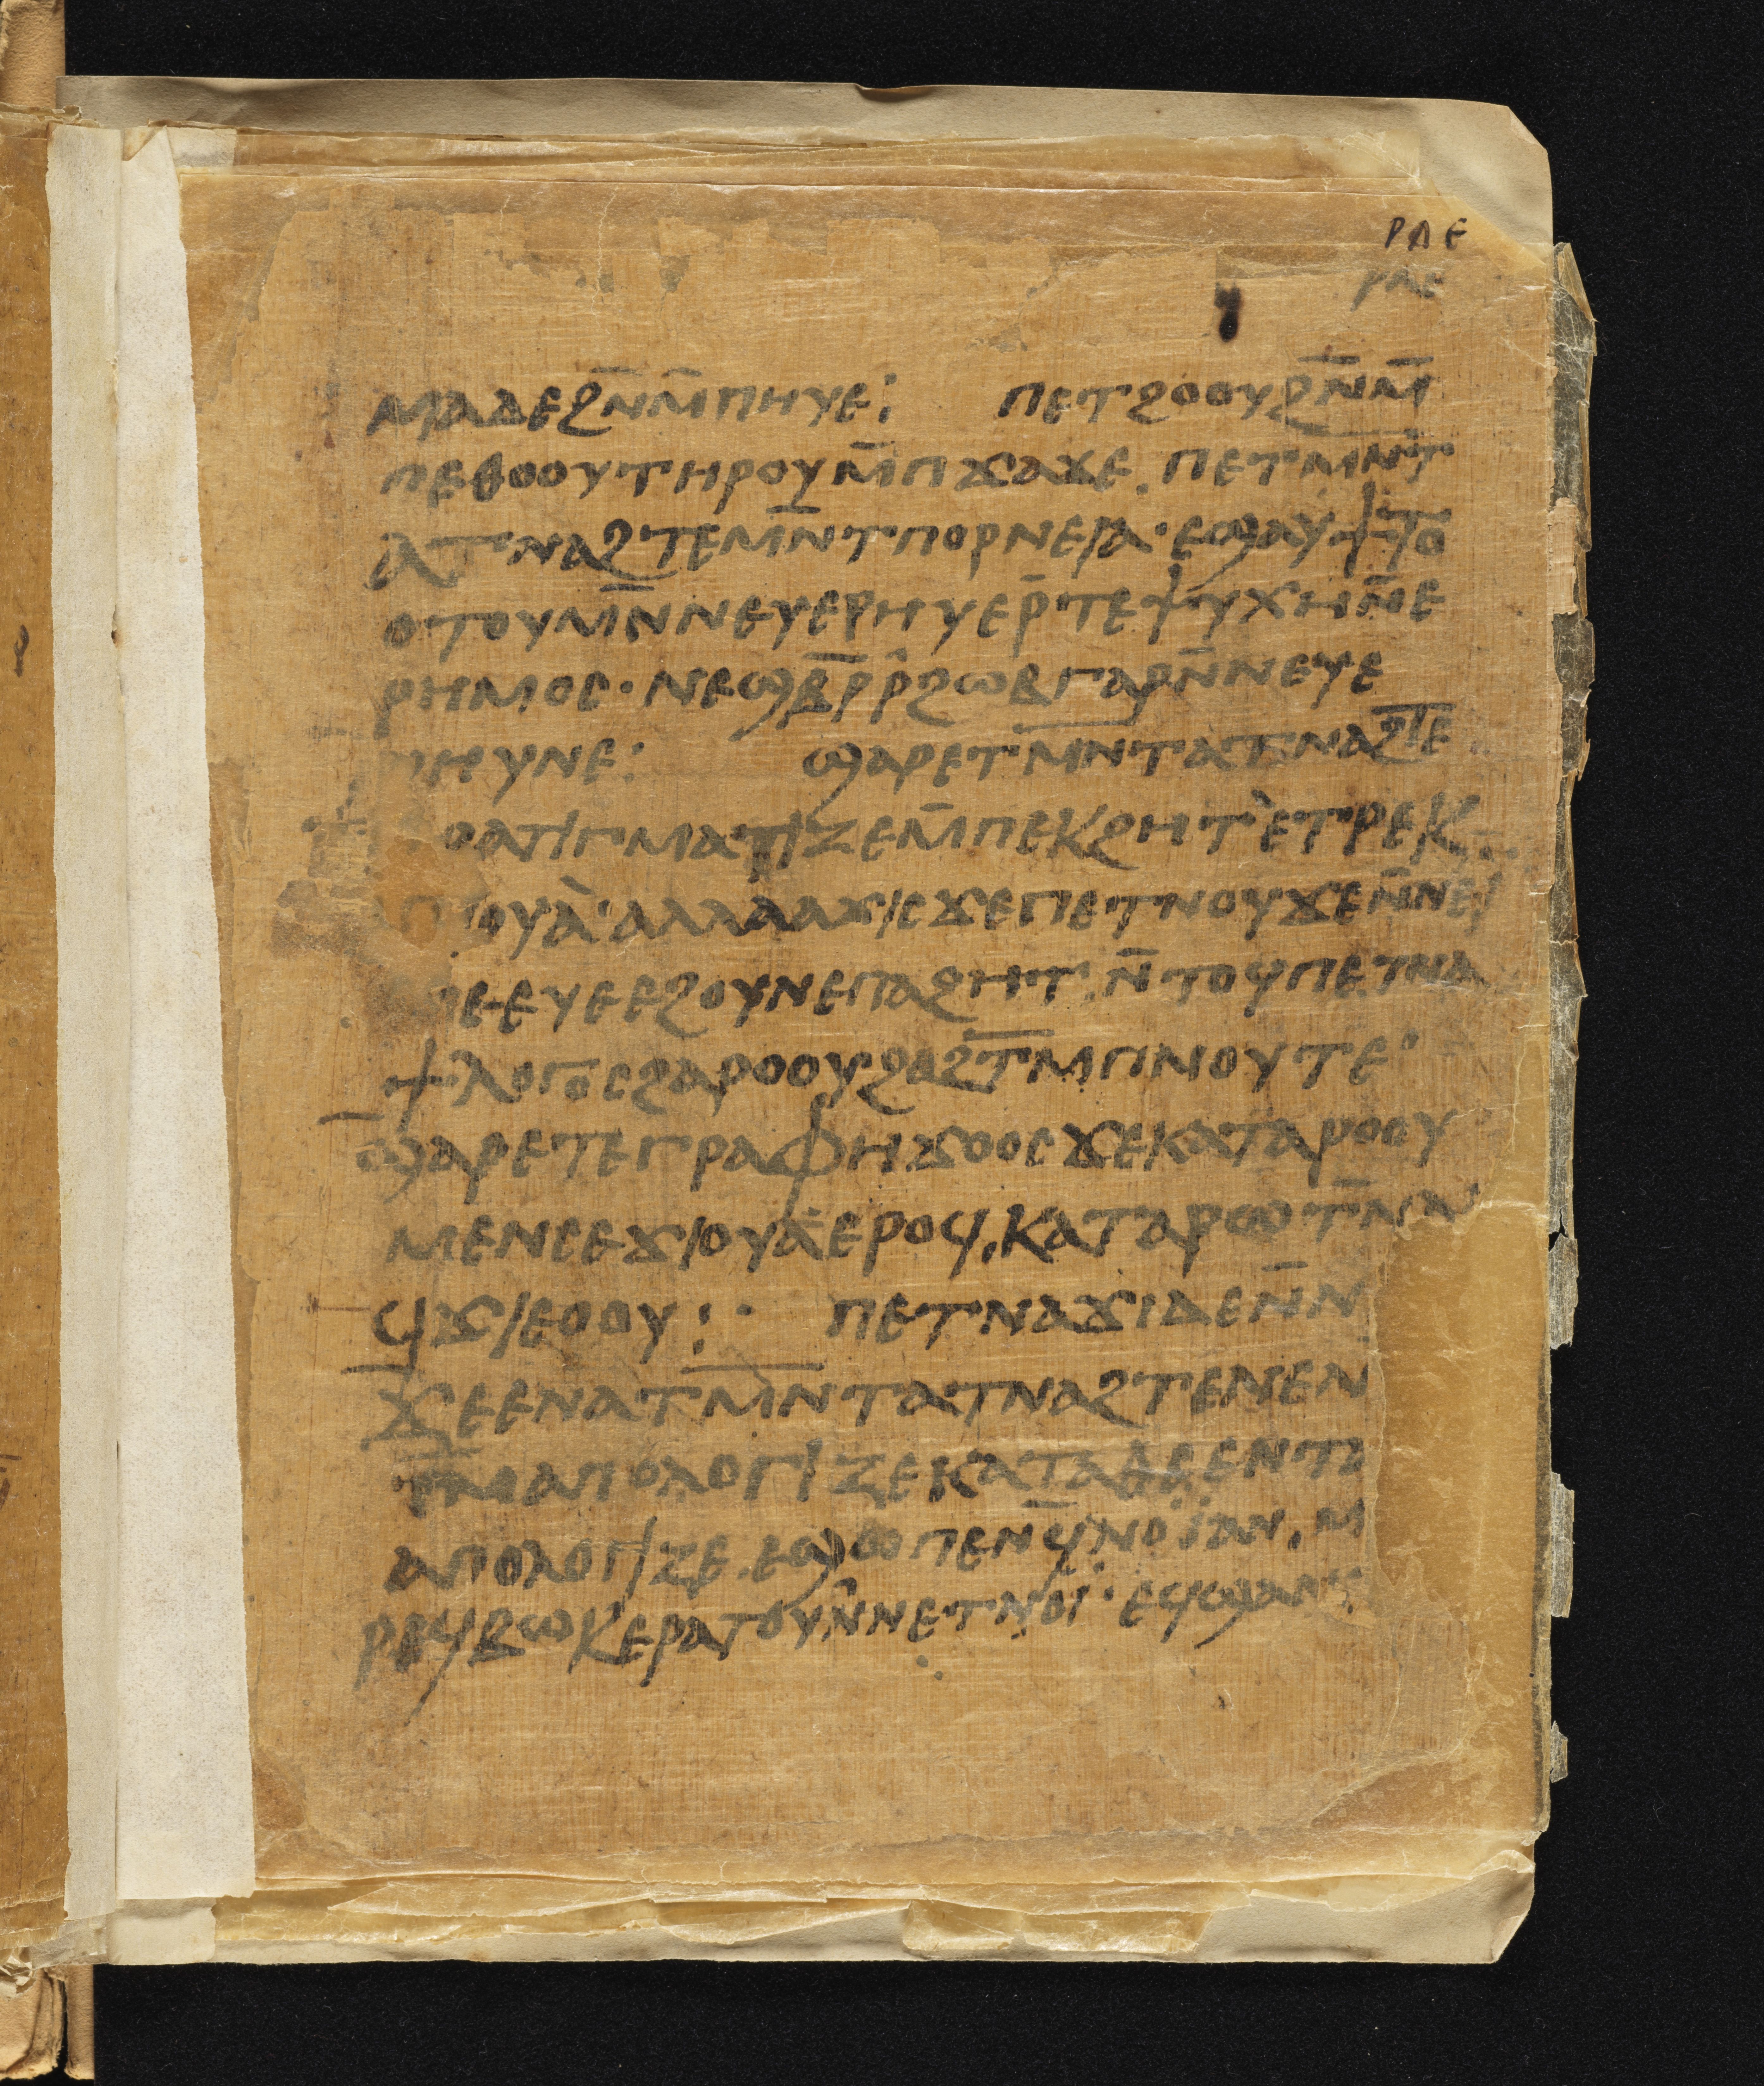 ⲣⲗⲉ
ⲣⲗⲉ
ⲙⲁⲇⲉϩⲛ̄ⲙ̄ⲡⲏⲩⲉ: ⲡⲉⲧϩⲟⲟⲩϩⲛ̄ⲙ̄
ⲡⲉⲑⲟⲟⲩⲧⲏⲣⲟⲩⲙ̄ⲡϫⲁϫⲉ. ⲡⲉⲧⲙⲛ̄ⲧ
ⲁⲧⲛⲁϩⲧⲉⲙⲛ̄ⲧⲡⲟⲣⲛⲉⲓⲁ· ⲉϣⲁⲩϯⲧⲟ
ⲟⲧⲟⲩⲙⲛ̄ⲛⲉⲩⲉⲣⲏⲩⲉⲣ̄ⲧⲉⲯⲩⲭⲏⲛ̄ⲉ
ⲣⲏⲙⲟⲥ· ⲛⲉϣⲃ̄ⲣ̄ⲣ̄ϩⲱⲃⲅⲁⲣⲛ̄ⲛⲉⲩⲉ
ⲣⲏⲩⲛⲉ: ϣⲁⲣⲉⲧⲙⲛ̄ⲧⲁⲧⲛⲁϩⲧⲉ
ⲇⲟⲅⲙⲁⲧⲓⲍⲉⲙ̄ⲡⲉⲕϩⲏⲧ ⲉⲧⲣⲉⲕ
ⲟⲩⲁ· ⲁⲗⲗⲁⲁϫⲓⲥϫⲉⲡⲉⲧⲛⲟⲩϫⲉⲛ̄ⲛⲉⲓ
ⲙⲉⲉⲩⲉⲉϩⲟⲩⲛⲉⲡⲁϩⲏⲧ. ⲛ̄ⲧⲟϥⲡⲉⲧⲛⲁ
ϯⲗⲟⲅⲟⲥϩⲁⲣⲟⲟⲩϩⲁϩⲧⲙ̄ⲡⲛⲟⲩⲧⲉ·
ϣⲁⲣⲉⲧⲉⲅⲣⲁⲫⲏϫⲟⲟⲥϫⲉⲕⲁⲧⲁⲣⲟⲟⲩ
ⲙⲉⲛⲥⲉϫⲓⲟⲩⲁⲉⲣⲟϥ. ⲕⲁⲧⲁⲣⲱⲧⲛ̄ⲛ
ϥϫⲓⲉⲟⲟⲩ: · ⲡⲉⲧⲛⲁϫⲓⲇⲉⲛ̄ⲛ
ϫⲉⲉⲛⲁⲧⲙⲛ̄ⲧⲁⲧⲛⲁϩⲧⲉⲛⲉⲛ
ⲧⲙ̄ⲁⲡⲟⲗⲟⲅⲓⲍⲉⲕⲁⲧⲁⲑⲉⲉⲛⲧ
ⲁⲡⲟⲗⲟⲅⲓⲍⲉ. ⲉϣⲱⲡⲉⲛϥ̄ⲛⲟⲓ̈ⲁⲛ. ⲙ
ⲣⲉϥⲃⲱⲕⲉⲣⲁⲧⲟⲩⲛ̄ⲛⲉⲧⲛⲟⲓ̈· ⲉϥϣⲁⲛ